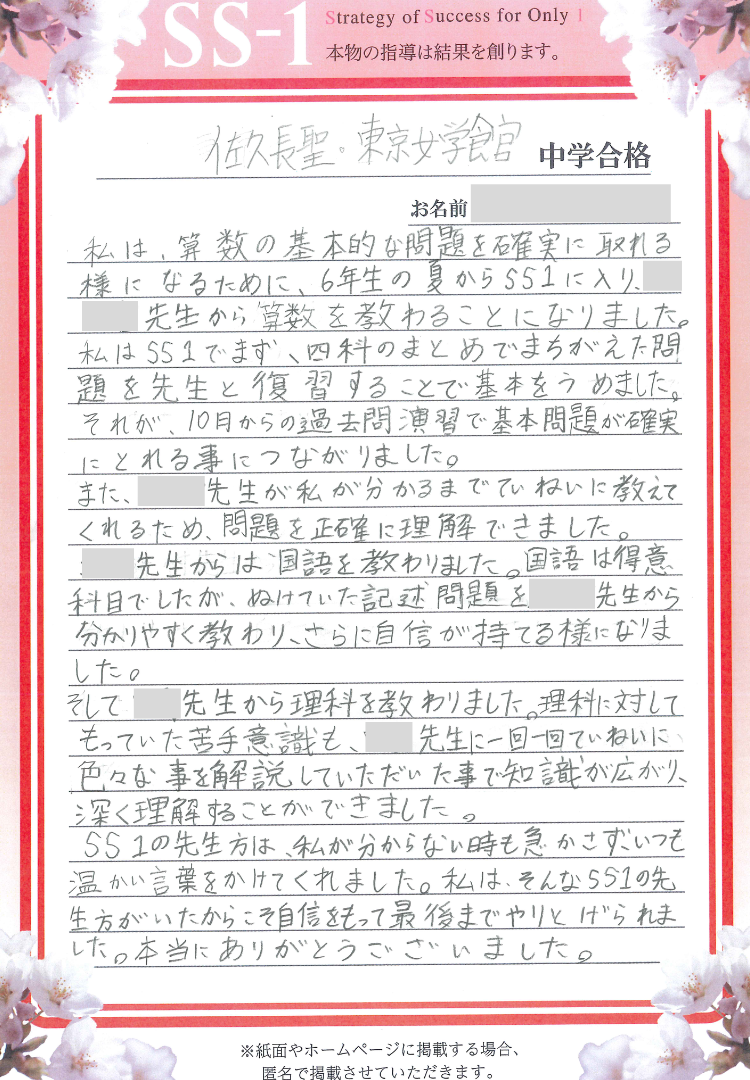 SS-1
Strategy of Success for Only 1
本物の指導は結果を創ります。
佐久長聖。東京女学館 中学合格
お名前
私は、算数の基本的な問題を確実に取れる
様になるために、6年生の夏からSS1に入り、
先生から算数を教わることになりました。
私はSS1でまず、四科のまとめでまちがえた問
題を先生と復習することで基本をうめました。
それが、10月からの過去問演習で基本問題が確実
にとれる事につながりました。
また、先生が私が分かるまでていねいに教えて
くれるため、問題を正確に理解できました。
先生からは国語を教わりました。国語は得意
科目でしたが、ぬけていた記述問題を先生から
分かりやすく教わり、さらに自信が持てる様になりま
した。
そして先生から理科を教わりました。理科に対して
もっていた苦手意識も、先生に一回一回ていねいに、
色々な事を解説していただいた事で知識が広がり、
深く理解することができました。
SS1の先生方は、私が分からない時も急かさず、いつも
温かい言葉をかけてくれました。私は、そんなSS1の先
生方がいたからこそ自信をもって最後までやりとげられま
した。本当にありがとうございました。
※紙面やホームページに掲載する場合、
匿名で掲載させていただきます。